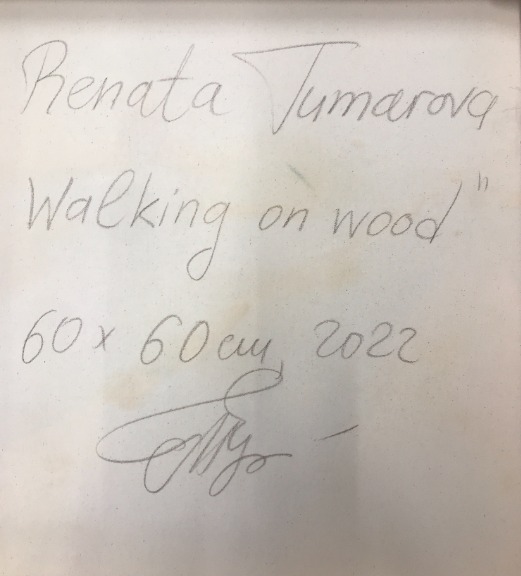 Renata Tumarova
Walking on wood"
60 x 60 cm, 2022